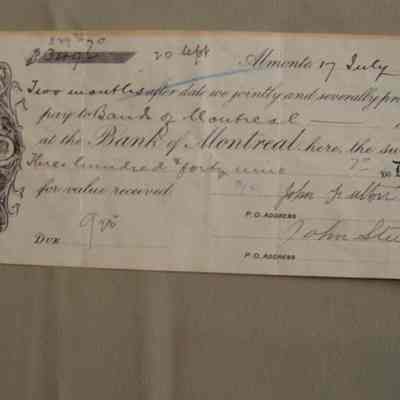 20 Sept Almonte 17 July
Two months after date we jointly and severally pro
pay to Bank of Montreal
at the Bank of Montreal here, the su
Three hundred & forty nine 70
for value received
John Fulton
P.O. ADDRESS
DUE
John Ste
P.O. ADDRESS